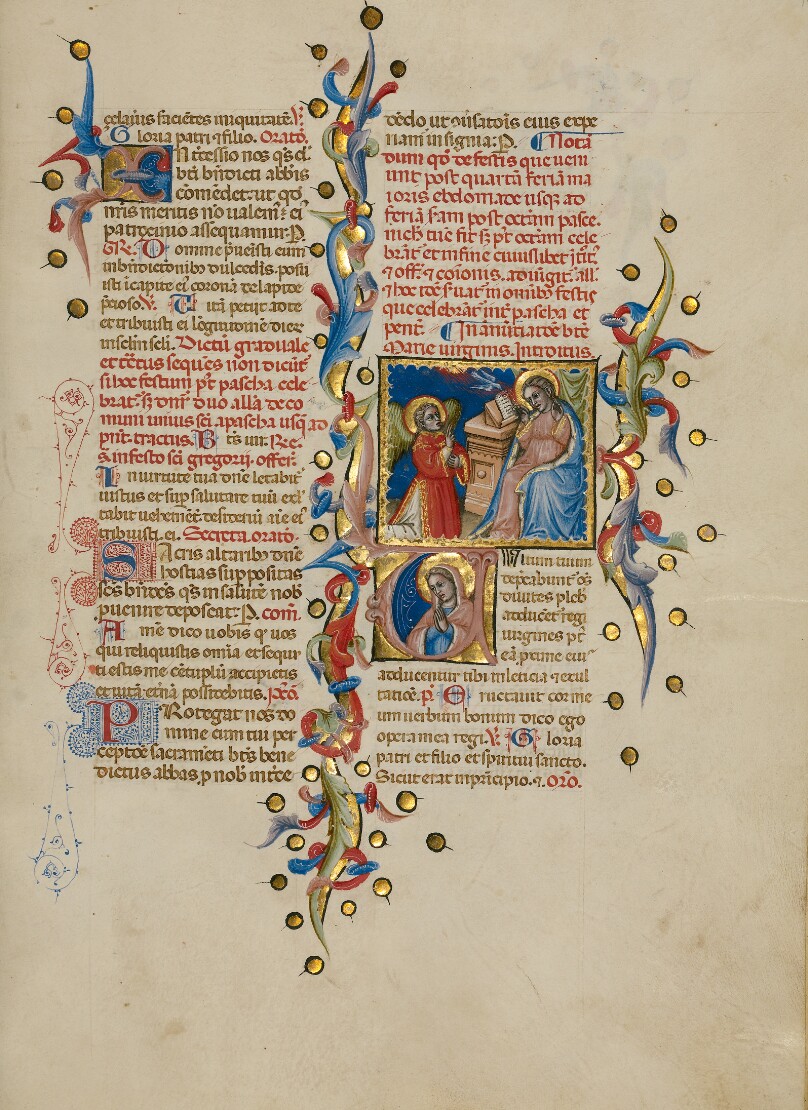 celarius facietes iniquitatē. V.
Gloria patri ⁊ filio. Orato.
Intercessio nos qs dn̄e
bt̄i bn̄dicti abbis
comēdet: ut qd
nr̄is mentis nō ualem᷑: ei᷑
patrocinio assequamur. P
GR. Domine preuēisti eum
in bn̄dictionibꝯ dulcedis. posu
isti ī capite ei᷑ coronā de lapide
p̄cioso. V. Uitā petiit a te
et tribuisti ei lōgitudinē dier᷑
in sc̄lm sc̄li. Dictū graduale
et tctus sequēs non dicūt᷑
si hoc festum pt᷑ pascha cele
brat᷑. sꝫ dn̄r duo all̄a de co
muni unius sc̄i a pascha usqꝫ ad
pent. tractus. Bt̄s uir. Re
q̄. in festo sc̄i gregorii. offer.
In uirtute tua dn̄e letabit᷑
iustus et sup salutare tuū exl
tabit uehemēt᷑ desideriū aīe ei᷑
tribuisti. ei. Secreta. orato.
Sacris altaribꝯ dn̄e
hostias suppositas
sc̄s bn̄dcs qs in salutē nob
puenire deposcat. P. com̄.
Amē dico uobis qꝫ uos
qui reliquistis omīa et sequu
ti estis me cētuplū accipietis
et uitā et̄nā possidebitis. p̄co.
Protegat nos do
mine cum tui per
ceptōe sacramēti bt̄s bene
dictus abbas. p nob̄ int᷑ce
dēdo ut ꝯuersatōis eius expe
riam᷑ insignia. P. Notā
dum qd̄ de festis que ueni
unt post quartā feriā ma
ioris ebdomade usqꝫ ad
feriā s̄am post octām pasce.
nich tūc fit sꝫ pt᷑ octām cele
brāt᷑ et in fine cuiuslibet int᷑ti᷑
⁊ off᷑. ⁊ cōionis. adiūgit᷑ all᷑
⁊ hoc idē s̄uat᷑ in omībꝯ festis
que celebrāt᷑ int᷑ pascha et
pent̄. In anūtiatōe bt̄e
Marie uirginis. Introitus.
Vultum tuum
depcabunt᷑ oēs
diuites plebis
adducēt᷑ regi
uirgines pt᷑
eā proxime eiu᷑
adducentur tibi in leticia ⁊ exul
tatiōe. p̄. Eructauit cor me
um uerbum bonum dico ego
opera mea regi. V. Gloria
patri et filio et spiritui sancto.
Sicut erat in principio. ⁊. Oro.